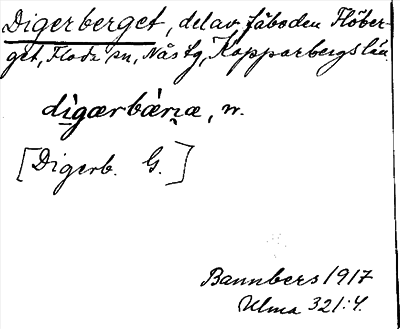 Digerberget, del av fäboden Flöber-
get, Floda sn, Nås tg, Kopparbergs län.
dìgærbǽrɪæ, n.
[Digerb. G.]
Bannbers 1917
Ulma 321:4.